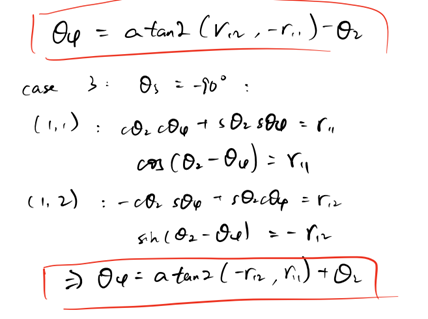 θ4 = atan2(r12, -r11) - θ2
case 3: θ5 = -90° :
(1,1) : cθ2 cθ4 + sθ2 sθ4 = r11
cos(θ2 - θ4) = r11
(1,2) : -cθ2 sθ4 + sθ2 cθ4 = r12
sin(θ2 - θ4) = - r12
⇒ θ4 = atan2(-r12, r11) + θ2